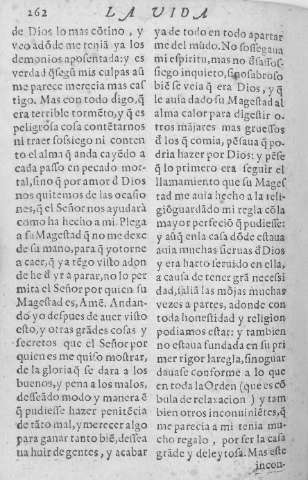 262 LA VIDA
de Dios lo mas cõtino, y
veo adõde me tenià ya los
demonios aposentada: y es
verdad q̃segũ mis culpas aũ
me parece merecia mas cas
tigo. Mas con todo digo, q̃
era terrible tormẽto, y q̃ es
peligrosa cosa contẽtarnos
ni traer sossiego ni conten
to el alma q̃ anda cayẽdo a
cada passo en pecado mor-
tal, sino q̃ por amor d̃ Dios
nos quitemos de las ocasio
nes, q̃ el Señor nos ayudarà
como ha hecho a mi. Plega
a su Magestad q̃ no me dexe
de su mano, para q̃ yo torne
a caer, q̃ ya tẽgo visto adon
de he d̃ yr a parar, no lo per
mita el Señor por quien su
Magestad es, Amẽ. Andan-
do yo despues de auer visto
esto, y otras grãdes cosas y
secretos que el Señor por
quien es me quiso mostrar,
de la gloria q̃ se dara a los
buenos, y pena a los malos,
desseãdo modo y manera ẽ
q̃ pudiesse hazer penitẽcia
de tãto mal, y merecer algo
para ganar tanto biẽ, dessea
ua huir de gentes, y acabar
ya de todo en todo apartar
me del mũdo. No sossegaua
mi espiritu, mas no dsassos-
siego inquieto, sino sabroso
biẽ se veia q̃ era Dios, y q̃
le auia dado su Magestad al
alma calor para digestir o-
tros mãjares mas gruessos
d̃ los q̃ comia, pẽsaua q̃ po-
dria hazer por Dios: y pẽse
q̃ lo primero era seguir el
llamamiento que su Mages
tad me auia hecho a la reli-
giõ guardãdo mi regla cõ la
mayor perfeciõ q̃ pudiesse:
y aũq̃ en la casa dõde estaua
auia muchas sieruas d̃ Dios
y era harto seruido en ella,
a causa de tener grã necessi
dad, saliã las mõjas muchas
vezes a partes, adonde con
toda honestidad y religion
podiamos estar: y tambien
no estaua fundada en su pri
mer rigor la regla, sino guar
dauase conforme a lo que
en toda la Orden (que es cõ
bula de relaxacion) y tam
bien otros inconuiniẽtes, q̃
me parecia a mi tenia mu-
cho regalo, por ser la casa
grãde y deleytosa. Mas este
incon-